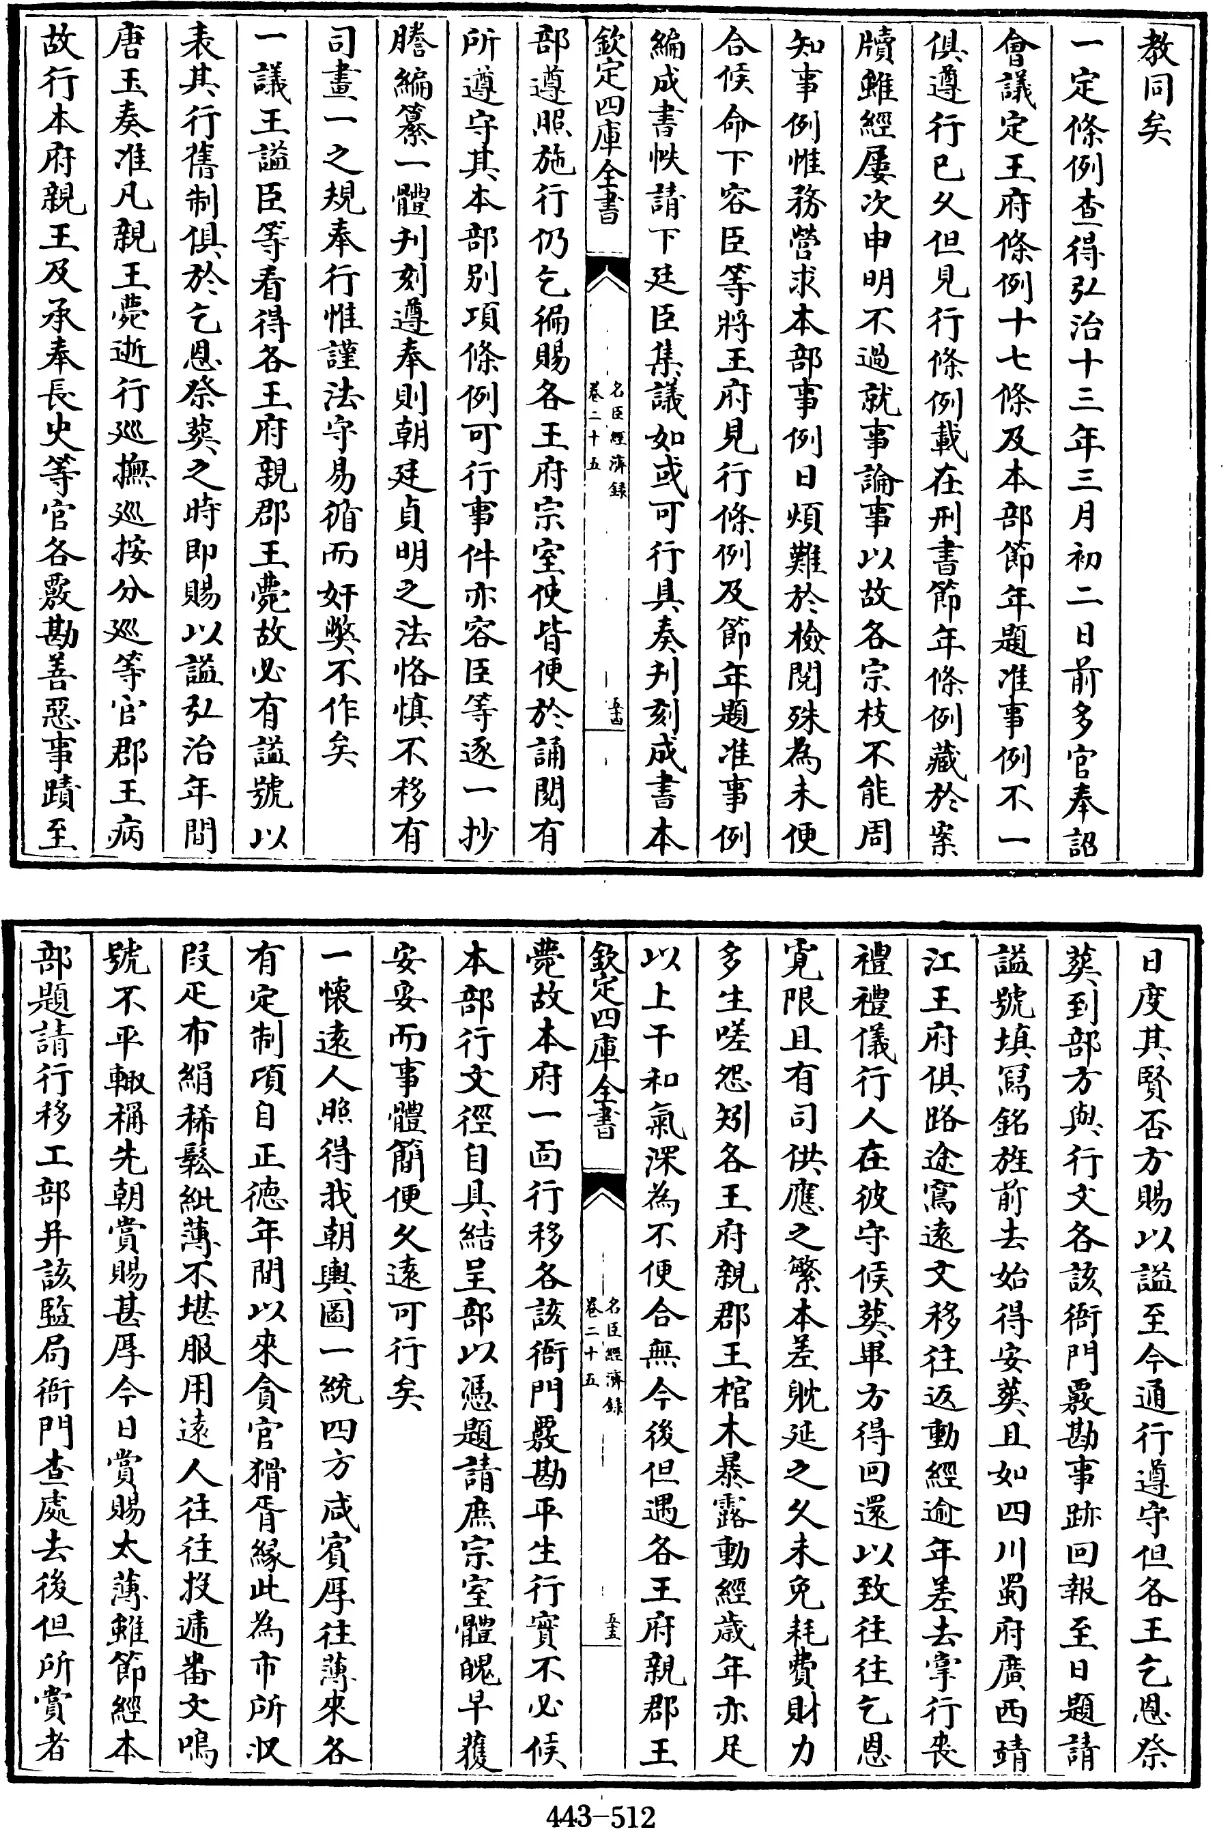 教同矣
一定條例查得弘治十三年三月初二日前多官奉詔
會議定王府條例十七條及本部節年題准事例不一
俱遵行已久但見行條例載在刑書節年條例藏於案
牘雖經屢次申明不過就事論事以故各宗枝不能周
知事例惟務營求本部事例日煩難於檢閱殊為未便
合候命下容臣等將王府見行條例及節年題准事例
編成書帙請下廷臣集議如或可行具奏刋刻成書本
欽定四庫全書
名臣經濟錄
卷二十五
五十四
部遵照施行仍乞徧賜各王府宗室使皆便於誦閱有
所遵守其本部别項條例可行事件亦容臣等逐一抄
謄編纂一體刋刻遵奉則朝廷貞明之法恪慎不移有
司畫一之規奉行惟謹法守易循而奸弊不作矣
一議王謚臣等看得各王府親郡王薨故必有謚號以
表其行舊制俱於乞恩祭葬之時即賜以謚弘治年間
唐玉奏准凡親王薨逝行巡撫巡按分巡等官郡王病
故行本府親王及承奉長史等官各覈勘善惡事蹟至
日度其賢否方賜以謚至今通行遵守但各王乞恩祭
葬到部方與行文各該衙門覈勘事跡回報至日題請
謚號填冩銘旌前去始得安葬且如四川蜀府廣西靖
江王府俱路途寫遠文移往返動經逾年差去掌行喪
禮禮儀行人在彼守候葬畢方得回還以致往往乞恩
寛限且有司供應之繁本差躭延之久未免耗費財力
多生嗟怨矧各王府親郡王棺木暴露動經歲年亦足
以上干和氣深為不便合無今後但遇各王府親郡王
欽定四庫全書
名臣經濟錄
卷二十五
五十五
薨故本府一面行移各該衙門覈勘平生行實不必候
本部行文徑自具結呈部以憑題請庶宗室體魄早獲
安妥而事體簡便久遠可行矣
一懷遠人照得我朝輿圖一統四方咸賓厚往薄來各
有定制項自正德年間以來貪官猾胥緣此為市所収
叚疋布絹稀鬆紕薄不堪服用遠人往往投遞番文鳴
號不平輙稱先朝賞賜甚厚今日賞賜太薄雖節經本
部題請行移工部并該監局衙門查處去後但所賞者
443-512